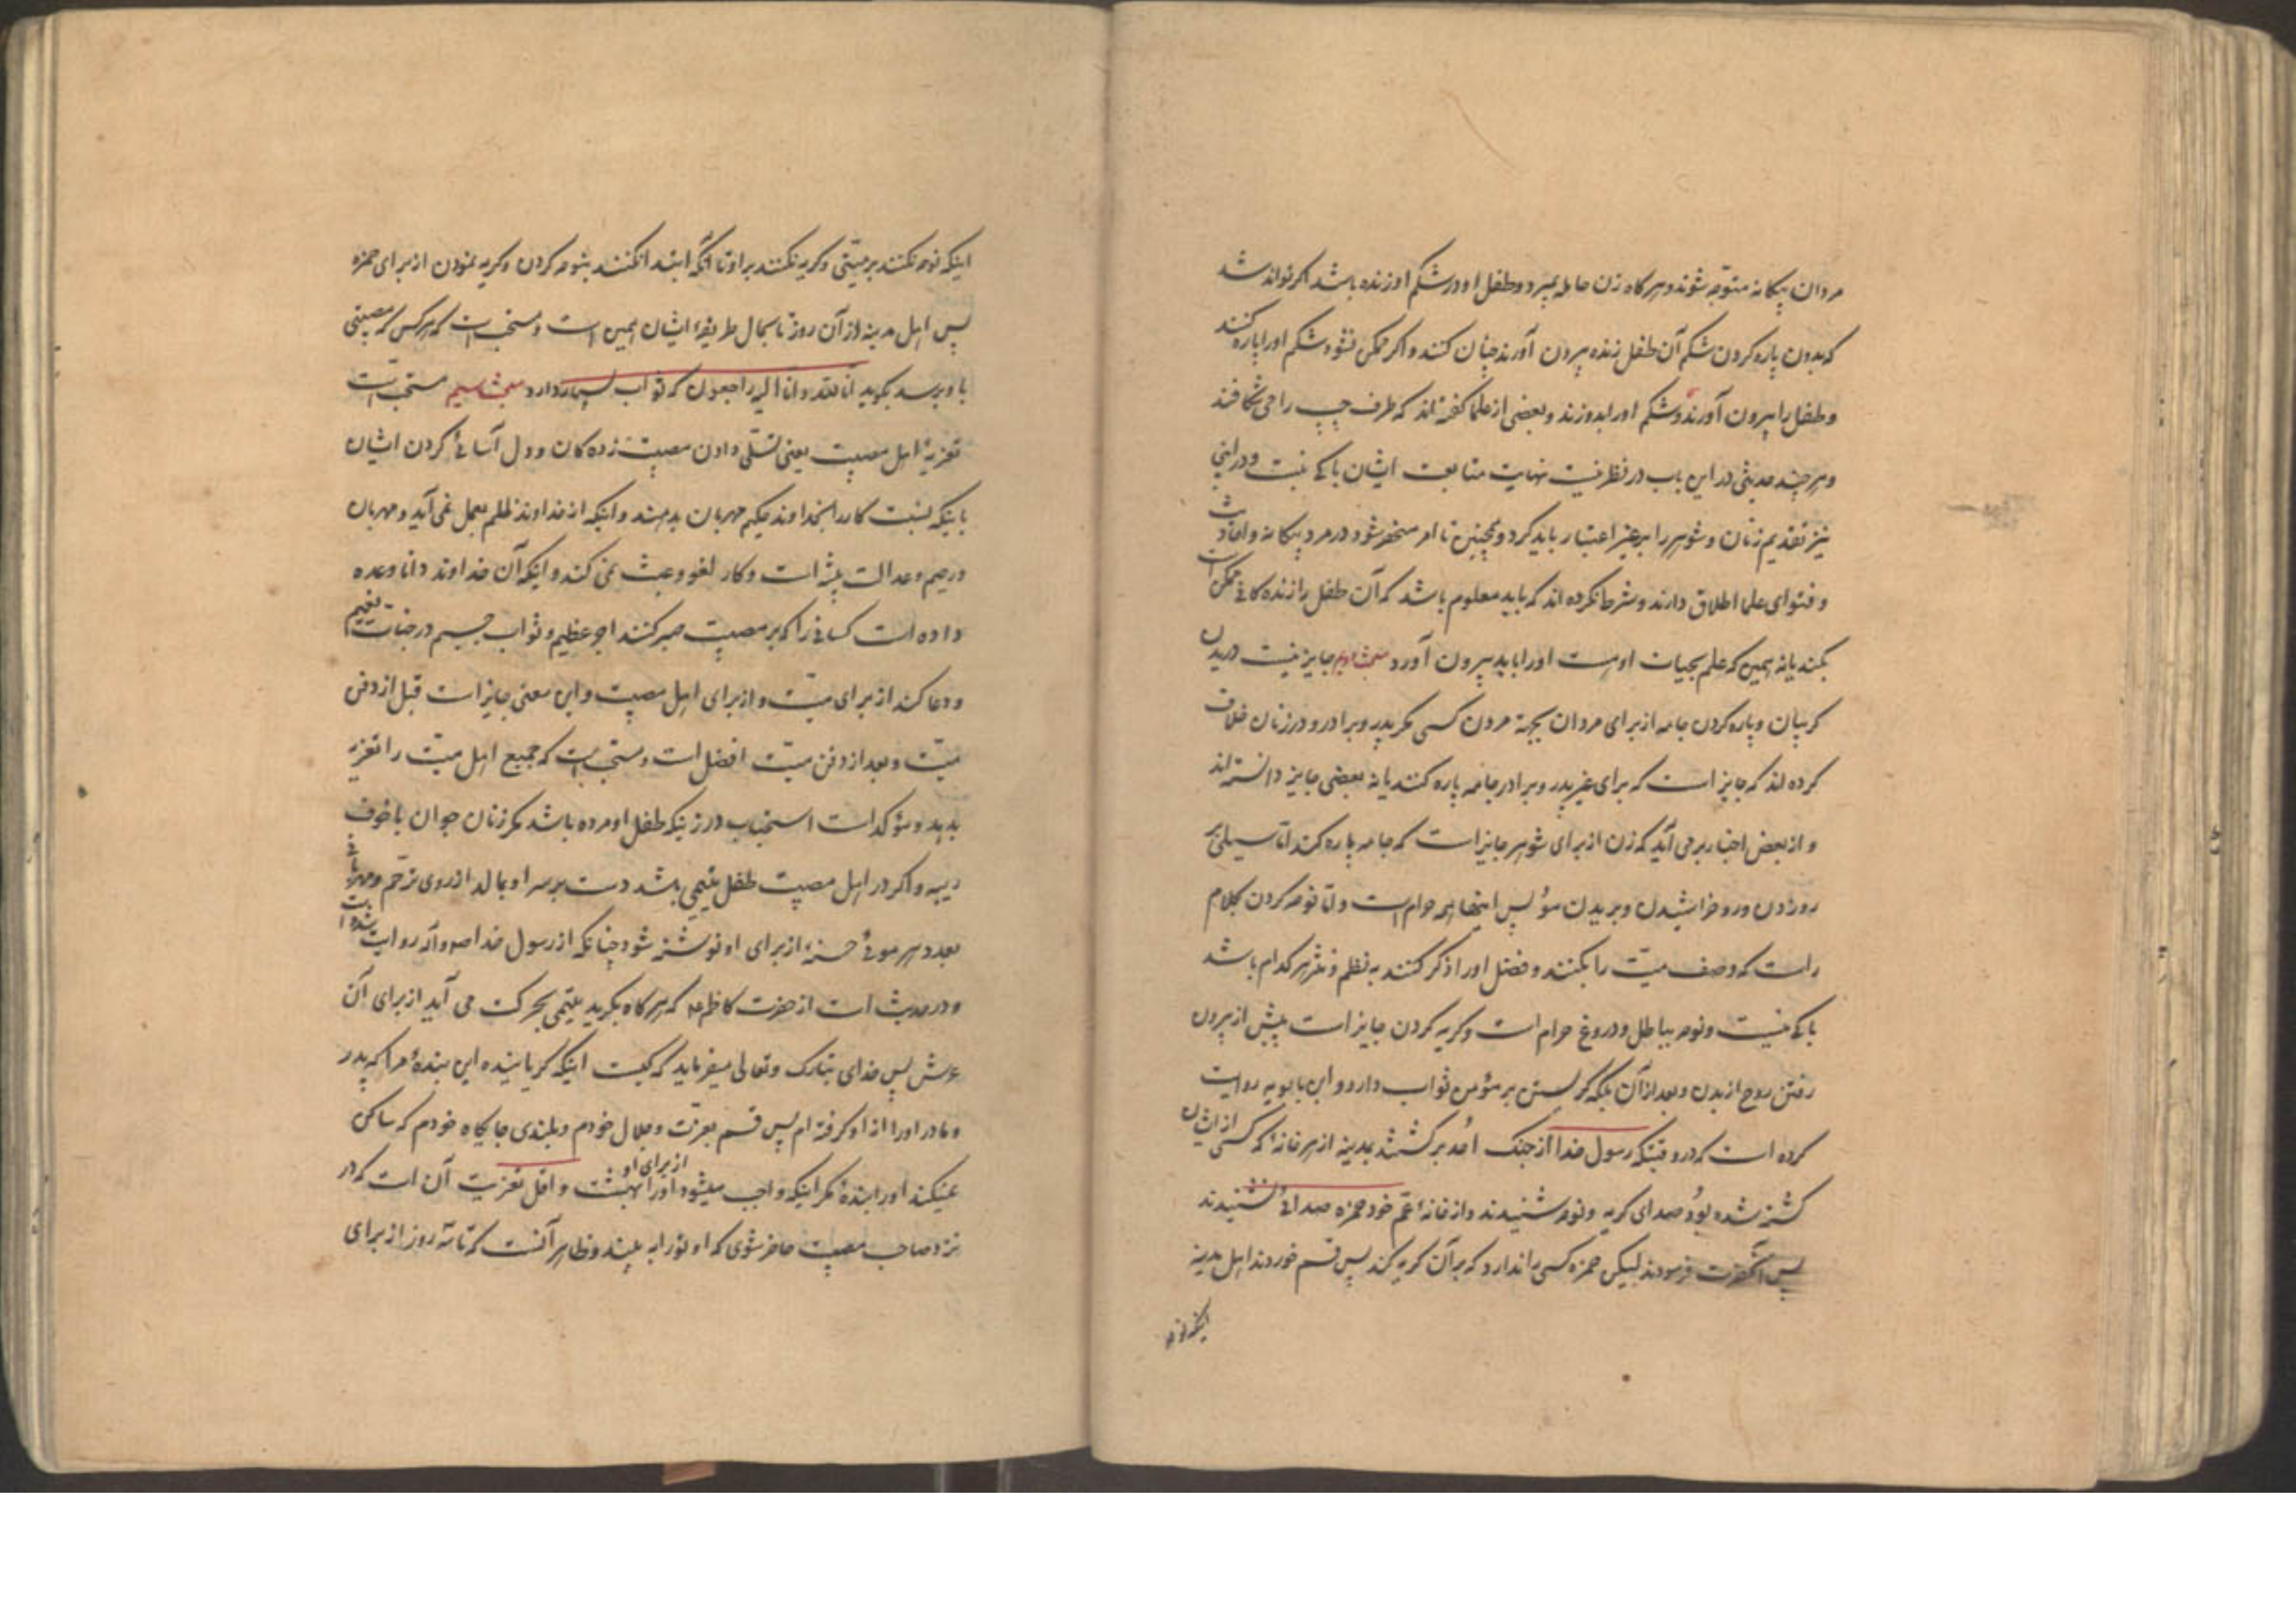 مردان بیکانه متوجه شوند و هر کاه زن حامله بمیرد و طفل او در شکم او زنده باشد اکر تواند شد
که بدون پاره کردن شکم آن طفل زنده بیرون آورند چنان کنند و اکر ممکن نشود شکم او را پاره کنند
و طفل را بیرون آورند و شکم او را بدوزند و بعضی از علما کفته‌اند که طرف چپ را می شکافند
و هر چند حدیثی در این باب در نظر نیست نهایت متابعت ایشان باکی نیست و در این
نیز تقدیم زنان و شوهر را بر غیر اعتبار باید کرد و همچنین تا امر منحصر شود در مرد بیکانه و احادیث
و فتوای علما اطلاق دارند و شرط نکرده اند که باید معلوم باشد که آن طفل را زنده کانی ممکن است
بکند یا نه همین که علم بحیات او هست او را باید بیرون آورد مبحث جایز نیست دریدن
کریبان و پاره کردن جامه از برای مردان بجهة مردن کسی مکر پدر و برادر و در زنان خلاف
کرده اند که جایز است که برای غیر پدر و برادر جامه پاره کنند یا نه بعضی جایز دانسته‌اند
و از بعض اخبار بر می آید که زن از برای شوهر جایز است که جامه پاره کند امّا سیلی بر
رو زدن و رو خراشیدن و بریدن مو پس اینها همه حرام است و امّا نوحه کردن بکلام
راست که وصف میّت را بکنند و فضل او را ذکر کنند به نظم و نثر هر کدام باشد
باکی نیست و نوحه بباطل و دروغ حرام است و کریه کردن جایز است پیش از بیرون
رفتن روح از بدن و بعد از آن بلکه کریستن بر مؤمن ثواب دارد و ابن بابویه روایت
کرده است که در وقتیکه رسول خدا از جنک اُحد برکشتند بمدینه از هر خانهٔ که کسی از ایشان
کشته شده بود صدای کریه و نوحه شنیدند و از خانهٔ عمّ خود حمزه صدائی نشنیدند
پس آنحضرت فرمودند لیکن حمزه کسی را ندارد که بر آن کریه کند پس قسم خوردند اهل مدینه
اینکه نوحه
اینکه نوحه نکنند بر میّتی و کریه نکنند بر او تا آنکه ابتدا نکنند بنوحه کردن و کریه نمودن از برای حمزه
پس اهل مدینه از آن روز تا بحال طریقهٔ ایشان همین است و مستحب است که هر کس که مصیبتی
باو برسد بکوید انّا للّه و انّا الیه راجعون که ثواب بسیار دارد مبحث مستحبّ است
تعزیهٔ اهل مصیبت یعنی تسلّی دادن مصیبت زده کان و دل آسائی کردن ایشان
باینکه نسبت کار را بخداوند حکیم مهربان بدهند و اینکه از خداوند ظلم بعمل نمی آید و مهربان
و رحیم و عدالت پیشه است و کار لغو و عبث نمی کند و اینکه آن خداوند دانا وعده
داده است کسانی را که بر مصیبت صبر کنند اجر عظیم و ثواب جسیم در جنات نعیم
و دعا کند از برای میّت و از برای اهل مصیبت و این معنی جایز است قبل از دفن
میّت و بعد از دفن میّت افضل است و مستحب است که جمیع اهل میّت را تعزیه
بدهد و مؤکد است استحباب در زنیکه طفل او مرده باشد مکر زنان جوان با خوف
ریبه و اکر در اهل مصیبت طفل یتیمی باشد دست بر سر او بمالد از روی ترحّم و مهربانی
بعدد هر موئی حسنهٔ از برای او نوشته شود چنانکه از رسول خدا ص و آله روایت شده است
و در حدیث است از حضرت کاظم ع که هر کاه بکرید یتیمی بحرکت می آید از برای آن
عرش پس خدای تبارک و تعالی میفرماید که کیست اینکه کریانیده این بندهٔ مرا که پدر
و مادر او را از او کرفته ام پس قسم بعزّت و جلال خودم و بلندی جایکاه خودم که ساکن
نمیکند او را بندهٔ مکر اینکه واجب میشود از برای او بهشت و اقل تعزیت آن است که در
نزد صاحب مصیبت حاضر شوی که او تو را به بیند و ظاهر آنست که تا سه روز از برای